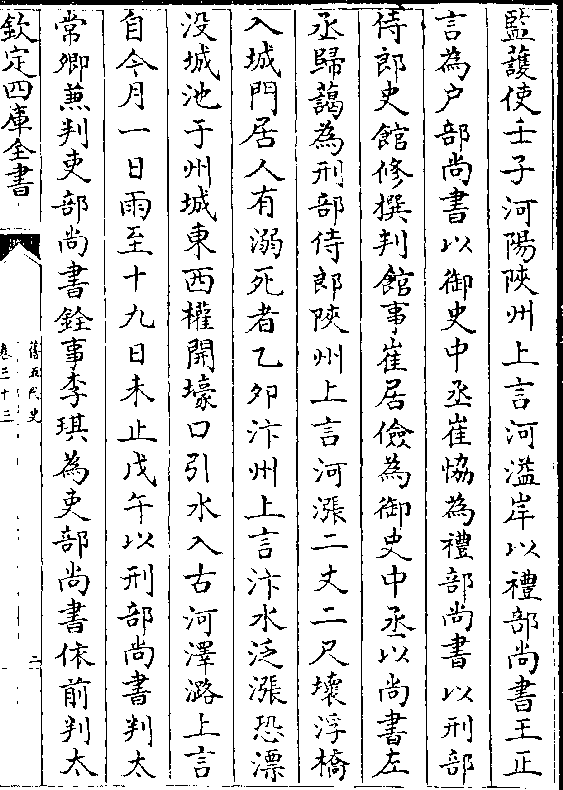 監䕶使壬子河陽陜州上言河溢岸以禮部尚書王正
言為户部尚書以御史中丞崔協為禮部尚書以刑部
侍郎史館修撰判館事崔居儉為御史中丞以尚書左
丞歸藹為刑部侍郎陜州上言河漲二丈二尺壞浮橋
入城門居人有溺死者乙夘汴州上言汴水泛漲恐漂
没城池于州城東西權開壕口引水入古河澤潞上言
自今月一日雨至十九日未止戊午以刑部尚書判太
常卿兼判吏部尚書銓事李琪為吏部尚書依前判太
欽定四庫全書
舊五代史
卷三十三
二